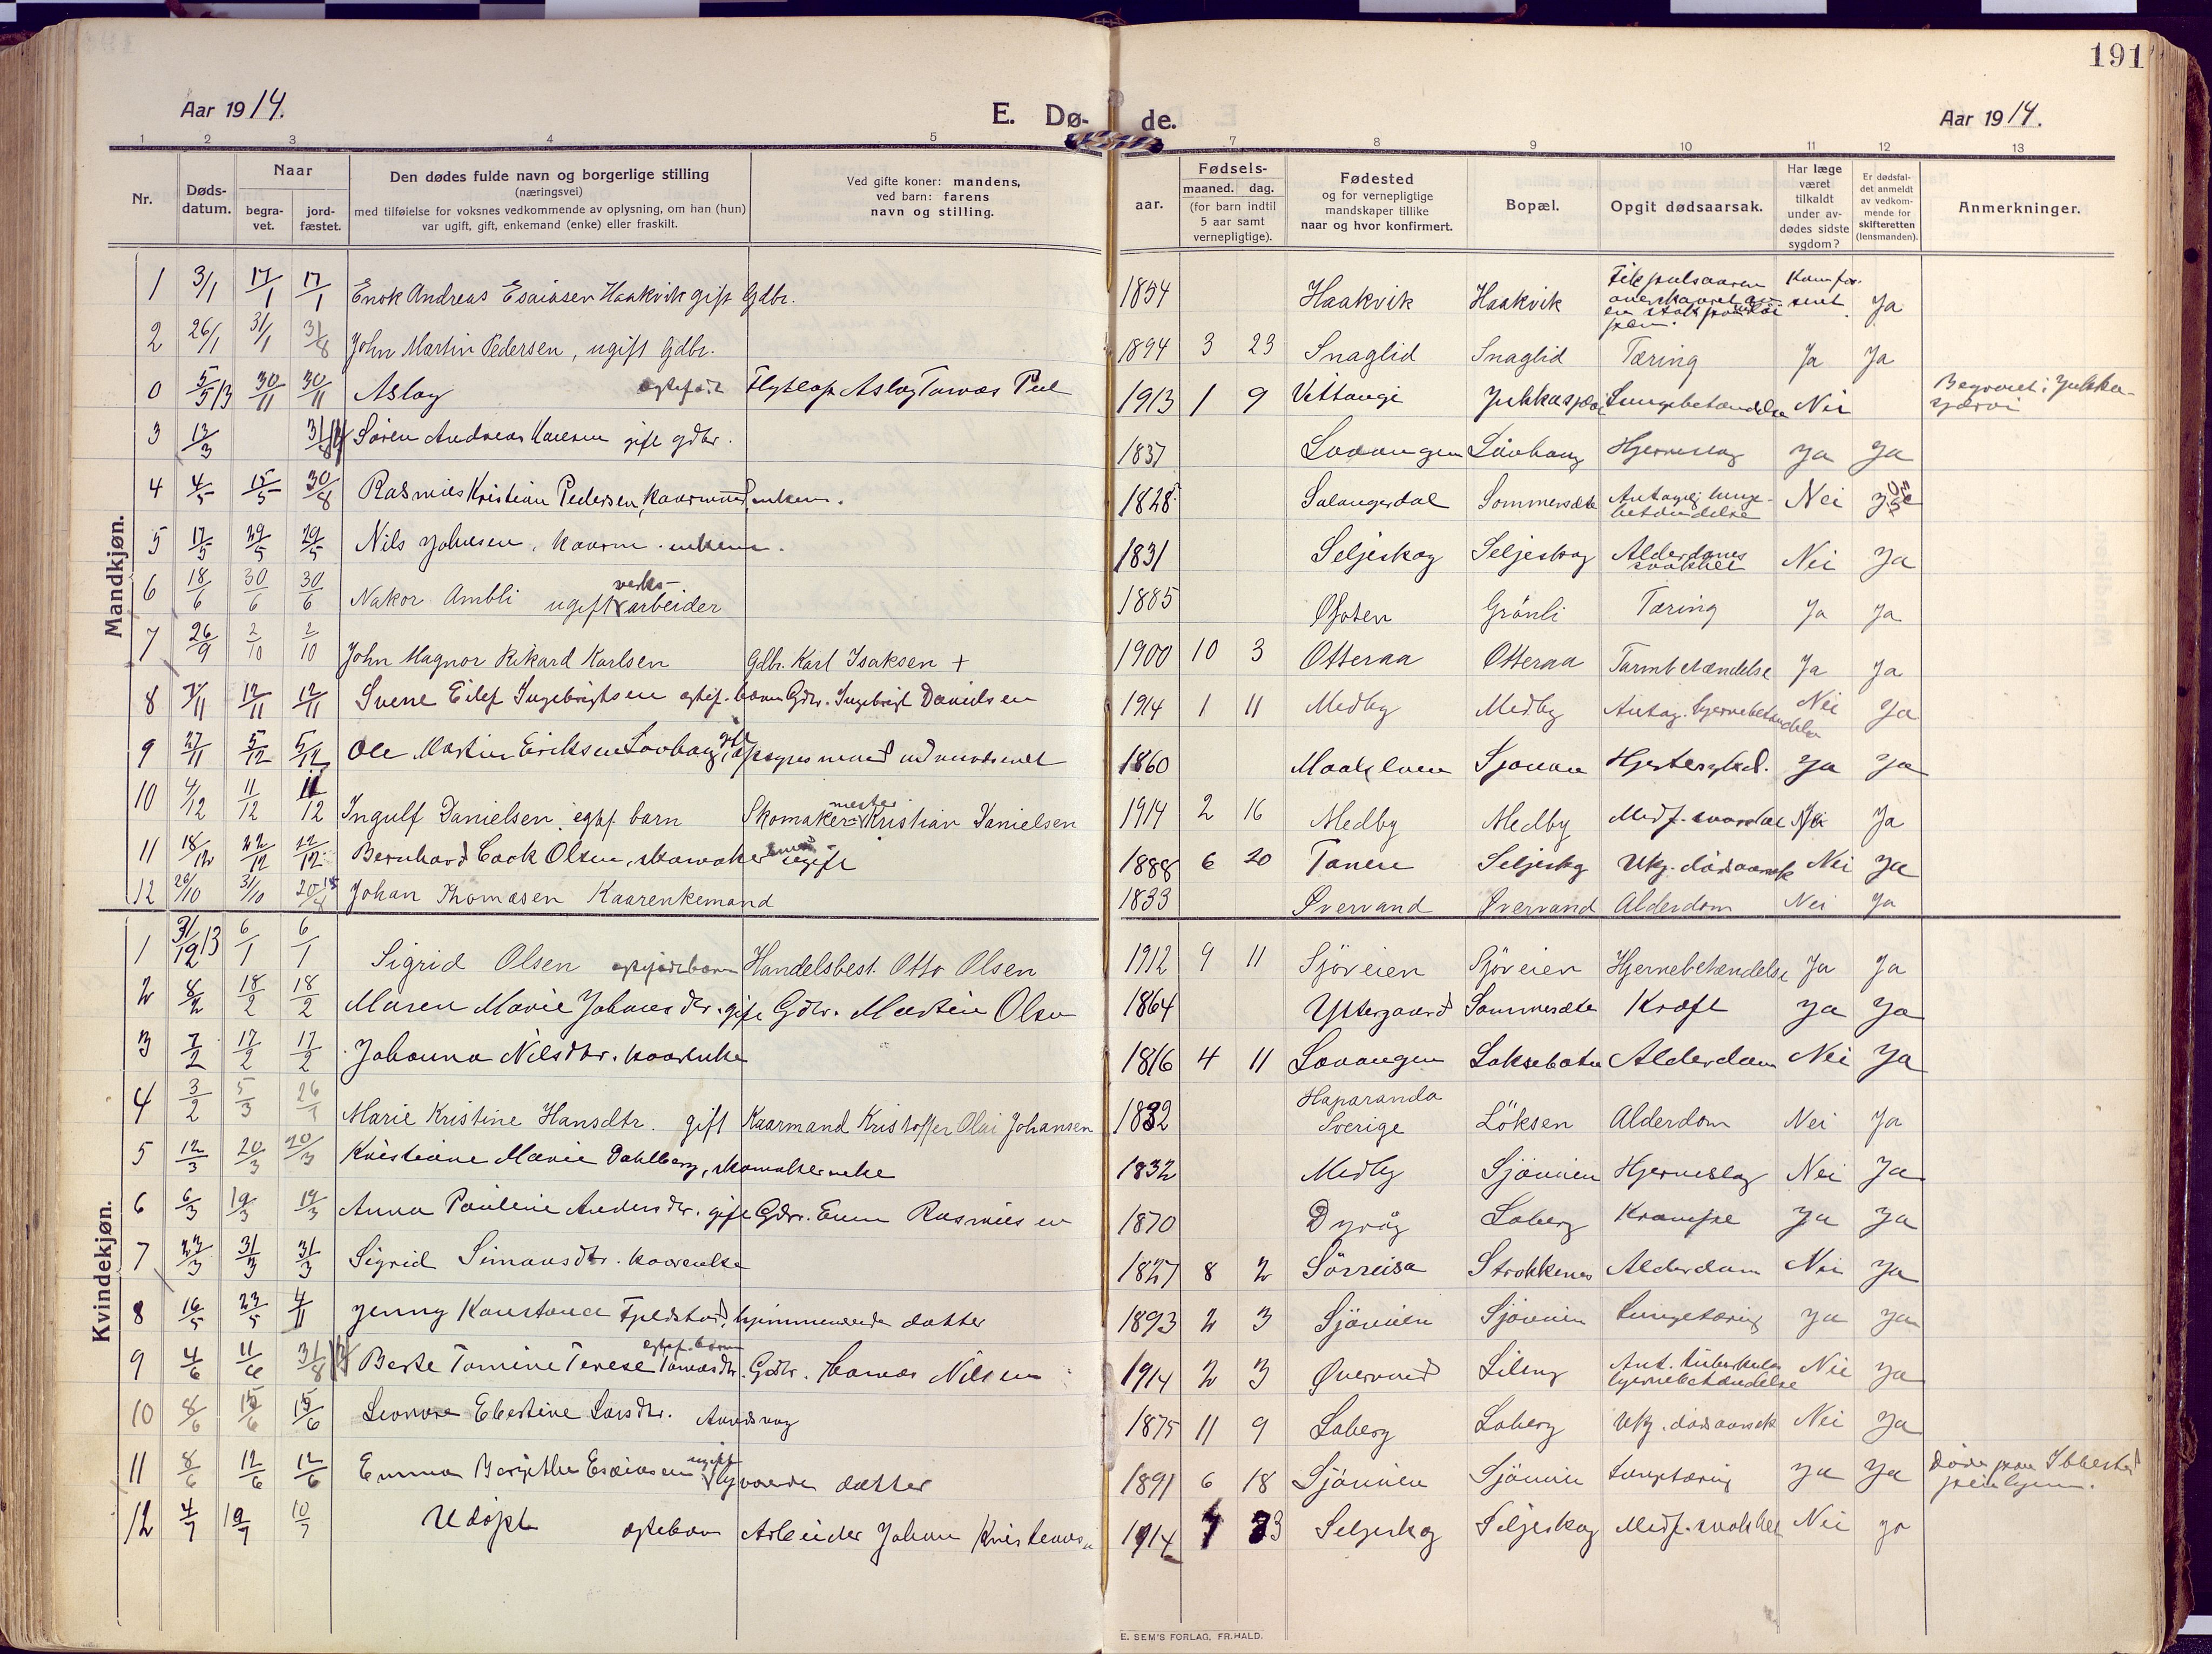 191
Aar 1914.
E. Dø-
de.
Aar 1914.
1 2 3 4 5 7 8 9 10 11 12 13
Nr.
Døds-
datum.
Naar
begra-
vet.
jord-
fæstet.
Den dødes fulde navn og borgerlige stilling
(næringsvei)
med tilføielse for voksnes vedkommende av oplysning, om han (hun)
var ugift, gift, enkemand (enke) eller fraskilt.
Ved gifte koner: mandens,
ved barn: farens
navn og stilling.
aar.
Fødsels-
maaned. dag.
(for barn indtil
5 aar samt
vernepligtige).
Fødested
og for vernepligtige
mandskaper tillike
naar og hvor konfirmert.
Bopæl.
Opgit dødsaarsak.
Har læge
været
tilkaldt
under av-
dødes sidste
sygdom?
Er dødsfal-
det anmeldt
av vedkom-
mende for
skifteretten
(lensmanden).
Anmerkninger.
Mandkjøn.
1 3/1 17/1 17/1 Enok Andreas Esaiasen Haakvik gift Gdbr. 1854 Haakvik Haakvik Ja
2 26/1 31/1 31/8 John Martin Pedersen, ugift Gdbr. 1894 3 23 Snaglid Snaglid Tæring Ja Ja
0 5/5 13 30/11 30/11 Aslag egtefødt Aslag 1913 1 9 Vittangi Lungebetændelse Nei Begravet i Jukkas-
jærvi
3 13/3 31/8 Søren Andreas gift gdbr. 1837 Lavangen Hjerneslag Ja Ja
4 4/5 15/5 30/8 Rasmus Kristian Pedersen, kaarmand, enkem. 1828 Salangsdal Antagelig lunge-
betændelse Nei
5 17/5 29/5 29/5 Nils Johnsen, kaarm. enkem. 1831 Seljeskog Seljeskog Alderdoms
svakhet Nei Ja
6 18/6 30/6 30/6 Nakor Ambli ugift verks-
arbeider 1885 Ofoten Grönli Tæring Ja Ja
7 26/9 2/10 2/10 John Magnor Rikard Karlsen Gdbr. Karl Isaksen + 1900 10 3 Otteraa Otteraa Tarmbetændelse Ja Ja
8 12/11 12/11 Eilef Ingebrigtsen egtef. barn Gdbr. Ingebrigt Danielsen 1914 1 11 Medby Medby Antag. hjernebetændelse Nei Ja
9 27/11 5/12 5/12 Ole Martin Eriksen Lovhaug gift 1860 Ja Ja
10 4/12 11/12 11/12 Ingulf Danielsen. egtf. barn Skomakermester Kristian Danielsen 1914 2 16 Medby Medby Medf. svakhet Nei Ja
11 18/12 22/12 22/12 Bernhard Cook Olsen, skomaker ugift 1888 6 20 Seljeskog Ukj. dødsaarsak Nei Ja
12 26/10 31/10 Johan Thomasen Kaarenkemand 1833 Øvervand Øvervand Alderdom Nei Ja
Kvindekjøn.
1 31/12 13 6/1 6/1 Sigrid Olsen egtefødt barn Handelsbest. Otto Olsen 1912 9 11 Sjöveien Sjöveien Hjernebetændelse Ja Ja
2 8/2 18/2 18/2 Maren Marie Johansdtr. gift Gdbr. Martin Olsen 1864 Yttergaard Sommersæte Kræft Ja Ja
3 7/2 17/2 17/2 Johanna Nilsdtr. kaarenke 1816 4 11 Lavangen Alderdom Nei Ja
4 3/2 5/3 Marie Kristine Hansdtr. gift Kaarmand Kristoffer Olai Johansen 1832 Haparanda
Sverige Löksen Alderdom Nei Ja
5 12/3 20/3 20/3 Kristiane Marie Dahlberg, skomakerenke 1832 Medby Sjöveien Hjerneslag Nei Ja
6 6/3 19/3 19/3 Anna Pauline Andersdtr. gift Gdbr. Rasmussen 1870 Dyröy Laberg Krampe Ja Ja
7 23/3 31/3 31/3 Sigrid Simonsdtr. kaarenke 1827 8 2 Sörreisa Strokkenes Alderdom Nei Ja
8 16/5 23/5 4/11 Jenny Konstanse Fjeldstad, hjemmeværende datter 1893 2 3 Sjöveien Sjöveien Lungetæring Ja Ja
9 4/6 11/6 31/8 Berte Tomine Terese Tomasdtr. egtef. barn Gdbr. Tomas Nilsen 1914 2 3 Øvervand Ant. tuberkuløs
hjernebetændelse Nei Ja
10 8/6 15/6 15/6 Leonore Ebertine Larsdtr. Aandsvag 1875 11 9 Laberg Laberg Ukj. dødsaarsak Nei Ja
11 8/6 12/6 12/6 Emma Bergitha Esaiasen ugift datter 1891 6 18 Sjöveien Sjöveien Lungetæring Ja Ja Døde paa Ibbestad
pleiehjem.
12 4/7 10/7 10/7 Udöpt egtebarn Arbeider Johan 1914 Seljeskog Seljeskog Medf. svakhet Nei Ja
E. SEM'S FORLAG, FR.HALD.